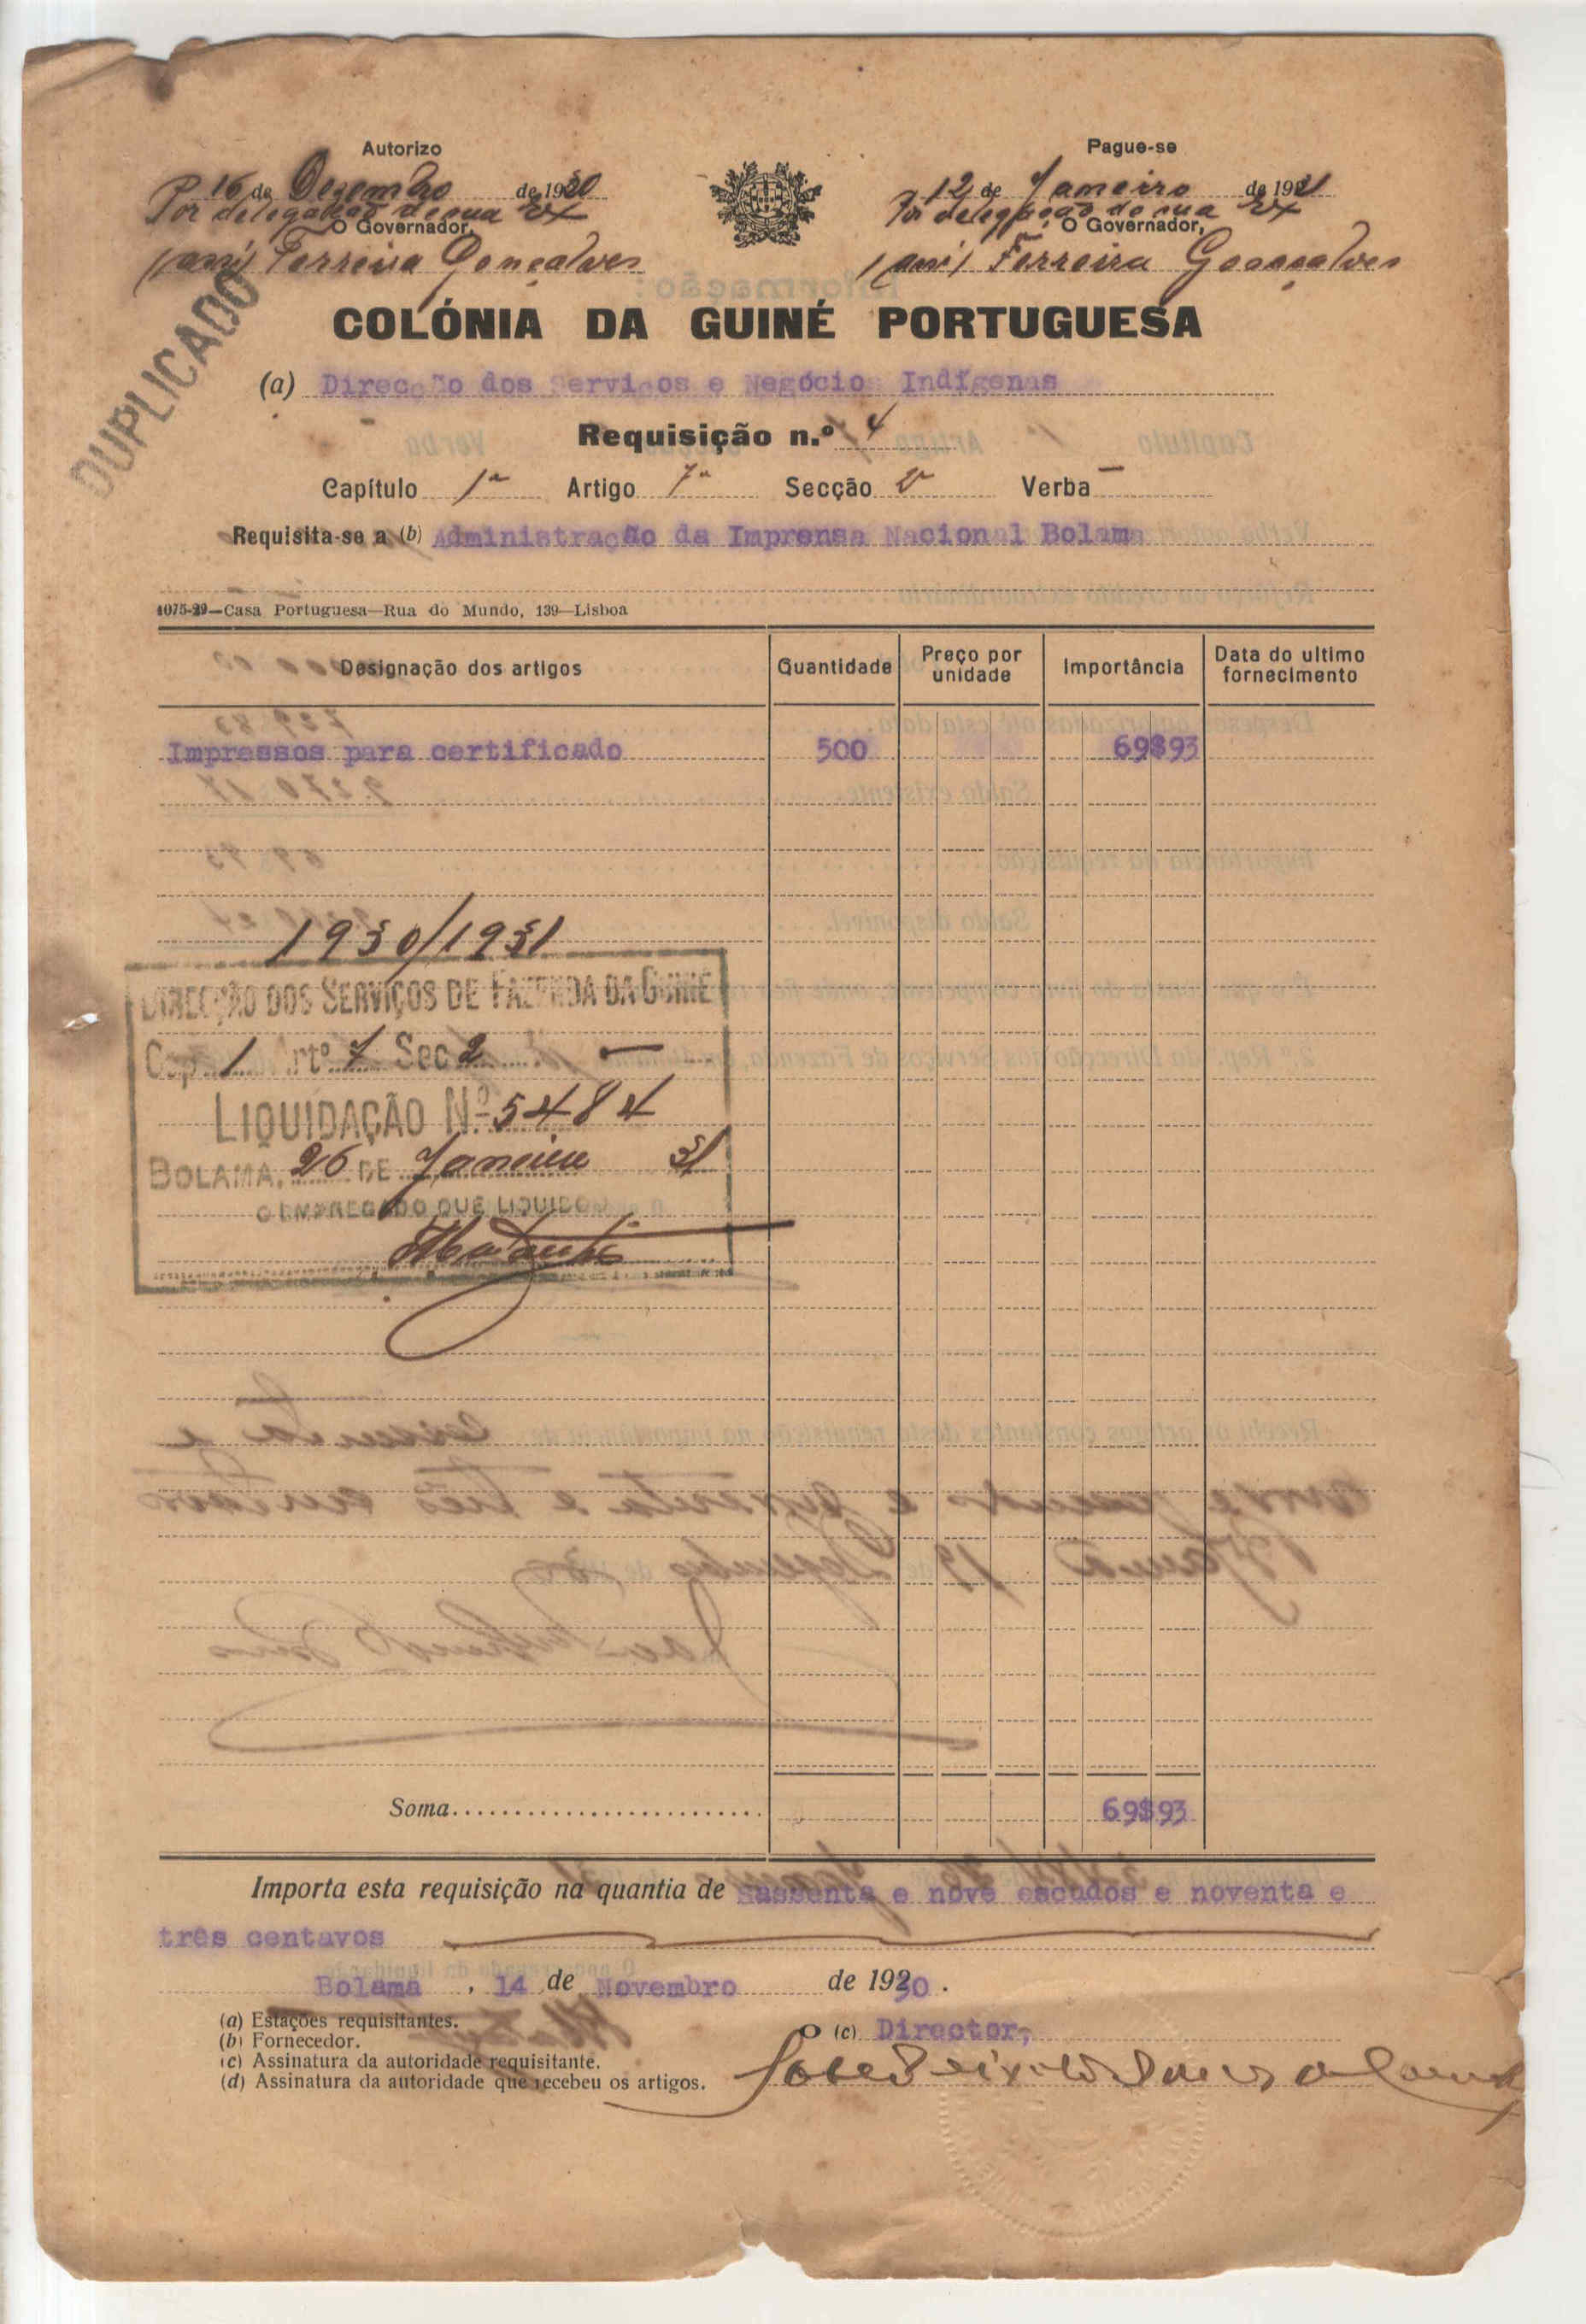 Autorizo
16 de Dezembro de 1930
Por delegação de sua Exª
O Governador,
(a) Ferreira Gonçalves
Pague-se
12 de Janeiro de 1931
Por delegação de sua Exª
O Governador,
(a) Ferreira Gonçalves
DUPLICADO
COLÓNIA DA GUINÉ PORTUGUESA
(a) Direcção dos Serviços e Negócios Indígenas
Requisição n.º 4
Capítulo 1º Artigo 7º Secção 2ª Verba —
Requisita-se a (b) Administração da Imprensa Nacional Bolama
1075-29—Casa Portuguesa—Rua do Mundo, 139—Lisboa
Designação dos artigos Quantidade Preço por unidade Importância Data do ultimo fornecimento
Impressos para certificado 500 69$93
1930/1931
DIRECÇÃO DOS SERVIÇOS DE FAZENDA DA GUINÉ
Cap. 1 Artº 7 Sec 2 —
LIQUIDAÇÃO Nº 5484
BOLAMA, 26 DE Janeiro 31
O EMPREGADO QUE LIQUIDOU
Soma 69$93
Importa esta requisição na quantia de sassenta e nove escudos e noventa e
três centavos
Bolama, 14 de Novembro de 1930.
(a) Estações requisitantes.
(b) Fornecedor.
(c) Assinatura da autoridade requisitante.
(d) Assinatura da autoridade que recebeu os artigos.
O (c) Director,